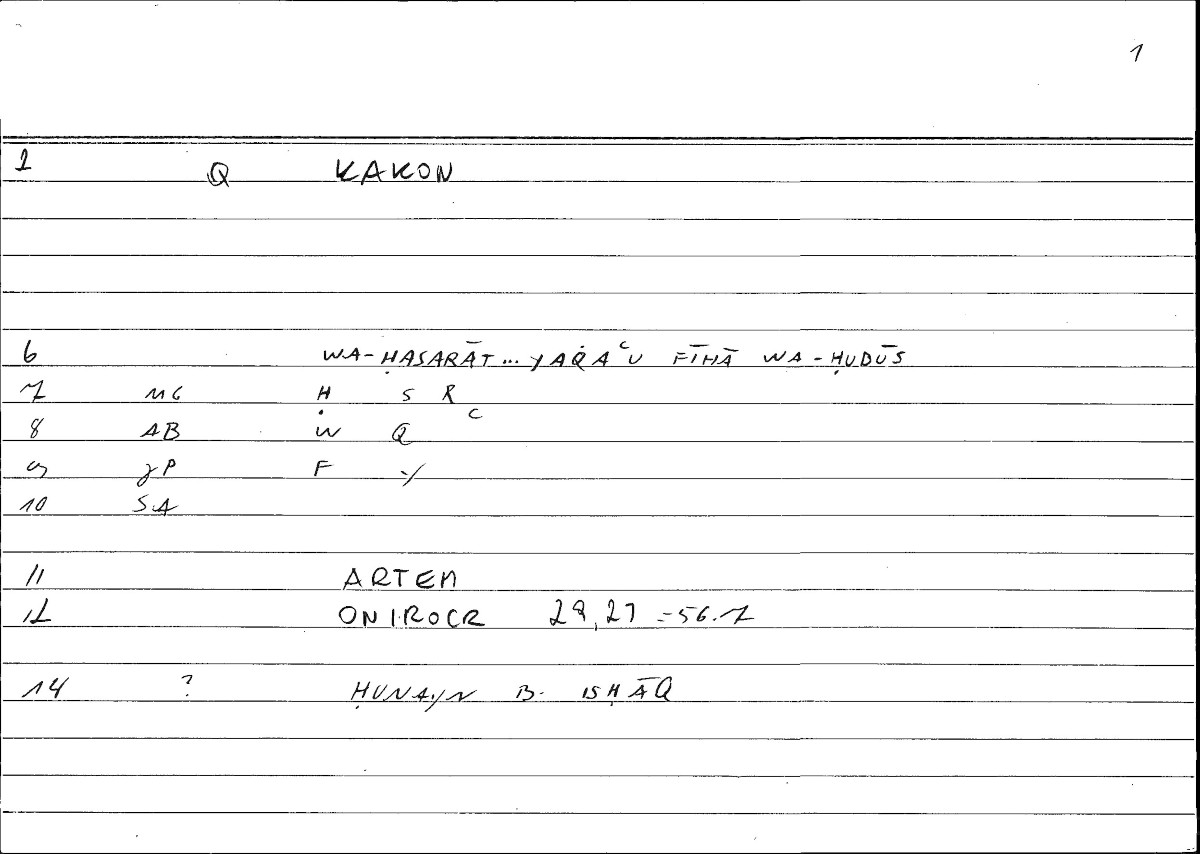 1
1 Q KAKON
6 WA-ḤASARĀT... YAQAʿU FĪHĀ WA-ḤUDŪS
7 MG Ḥ S R
8 AB W Q ʿ
9 γP F Y
10 SA
11 ARTEM
12 ONIROCR 28,27 =56.7
14 ? ḤUNAYN B. ISḤĀQ